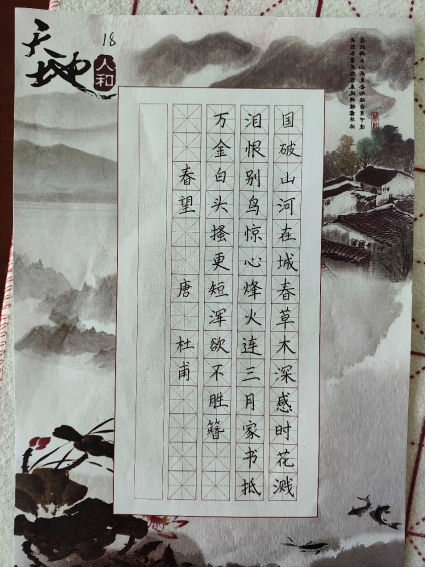 天地
人和
18
国破山河在城春草木深感时花溅
泪恨别鸟惊心烽火连三月家书抵
万金白头搔更短浑欲不胜簪
春望 唐 杜甫